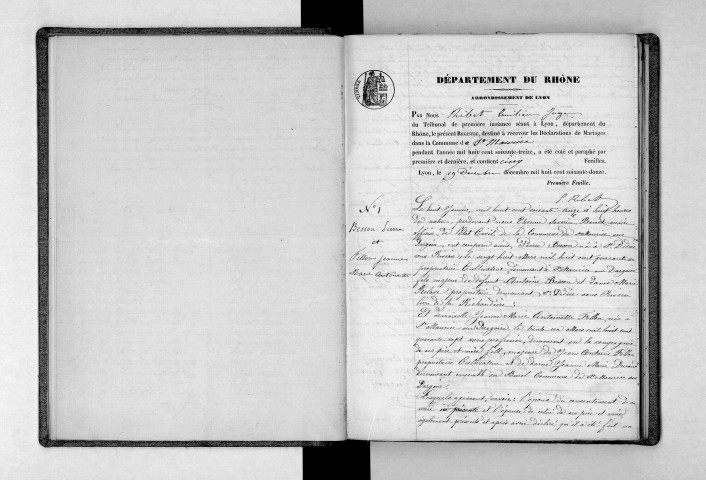 TIMBRE
DÉPARTEMENT DU RHÔNE
ARRONDISSEMENT DE LYON
PAR NOUS Ribet Juge
du Tribunal de première instance séant à Lyon, département du
Rhône, le présent REGISTRE, destiné à recevoir les Déclarations de Mariages
dans la Commune de St Maurice
pendant l'année mil huit cent soixante-treize, a été coté et paraphé par
première et dernière, et contient cinq Feuilles.
Lyon, le 19 Décembre décembre mil huit cent soixante-douze.
Première Feuille.
N° 1
Besson Pierre
et
Fillon Jeanne
Marie Antoinette
Le huit Janvier, mil huit cent soixante treize à huit heures
du matin, pardevant nous Etienne Benoit maire
officier de l'Etat Civil de la Commune de St Maurice sur
Dargoire, est comparu Pierre Besson né à St Didier
sous Riverie le vingt huit Mars mil huit cent quarante
propriétaire Cultivateur demeurant à St Maurice sur Dargoire
fils majeur de défunt Antoine Besson et dame Marie
propriétaire demeurant à St Didier sous Riverie
lieu de la Richaudière;
Et demoiselle Jeanne Marie Antoinette Fillon née à
St Maurice sur Dargoire le trente un Mars mil huit cent
quarante sept sans profession, demeurant en la compagnie
de ses père et mère fille majeure de Jean Antoine Fillon
propriétaire Cultivateur et de dame Jeanne Marie Durand
demeurant ensemble au Commune de St Maurice sur
Dargoire.
Lesquels agissant, savoir: l'époux du consentement de sa
mère ici présente et l'épouse de celui de ses père et mère
également présents et après avoir déclaré qu'il a été fait un